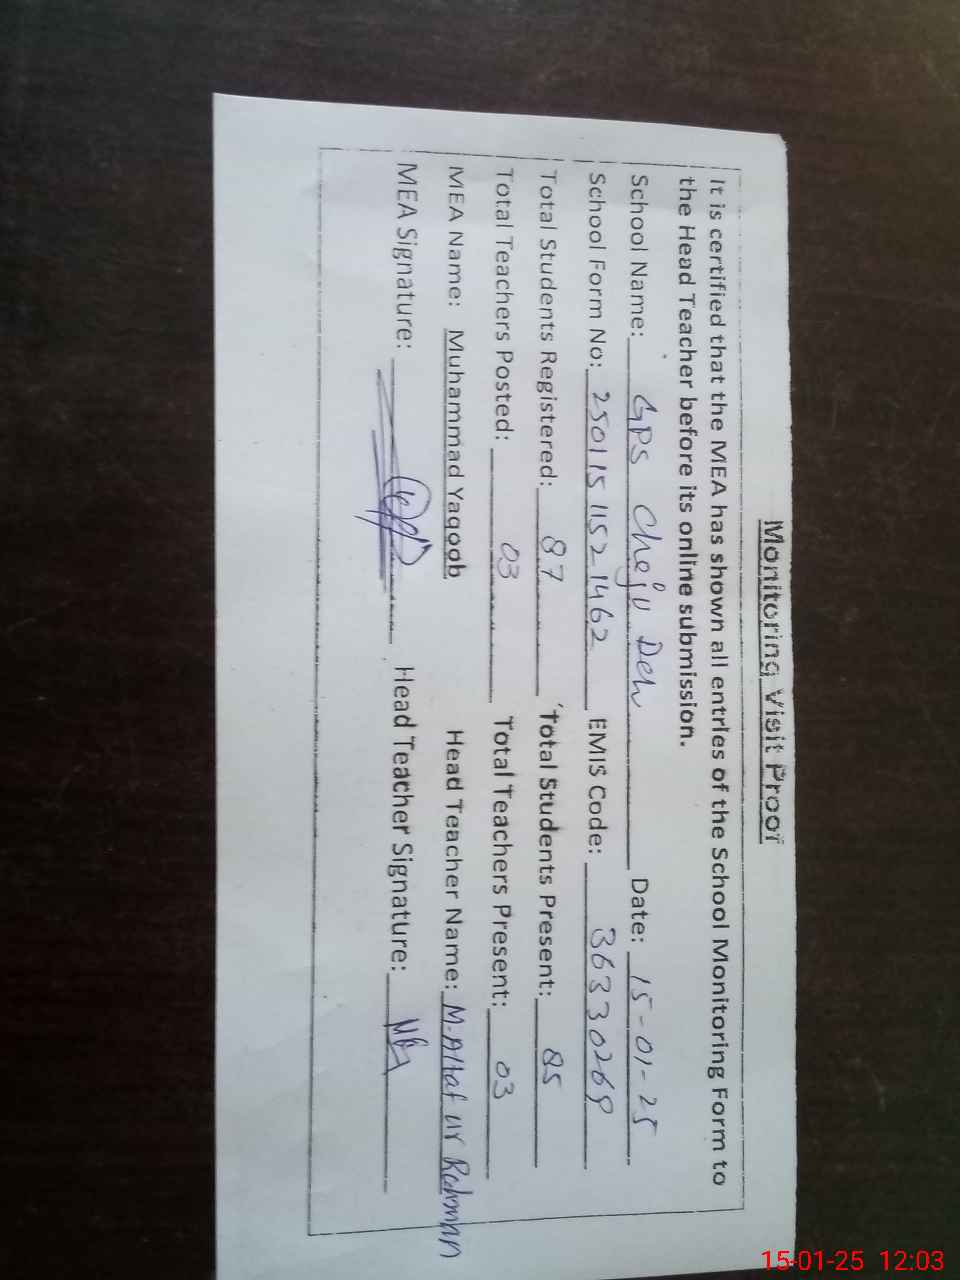 Monitoring Visit Proof
It is certified that the MEA has shown all entries of the School Monitoring Form to
the Head Teacher before its online submission.
School Name: GPS Cheju Deh Date: 15-01-25
School Form No: 250115 1152 1462 EMIS Code: 36330269
Total Students Registered: 87 Total Students Present: 85
Total Teachers Posted: 03 Total Teachers Present: 03
MEA Name: Muhammad Yaqoob Head Teacher Name: M. Altaf ur Rahman
MEA Signature: Head Teacher Signature:
15-01-25 12:03